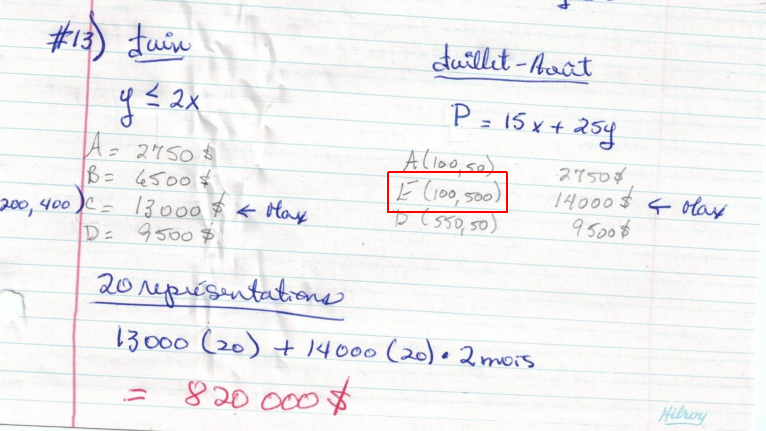 #13) Juin
y ≤ 2x
A = 2750 $
B = 6500 $
200, 400) C = 13000 $ ← Max
D = 9500 $
Juillet-Août
P = 15x + 25y
A (100, 50) 2750 $
E (100, 500) 14000 $ ← Max
D (550, 50) 9500 $
20 représentations
13000 (20) + 14000 (20) • 2 mois
= 820 000 $
Hilroy